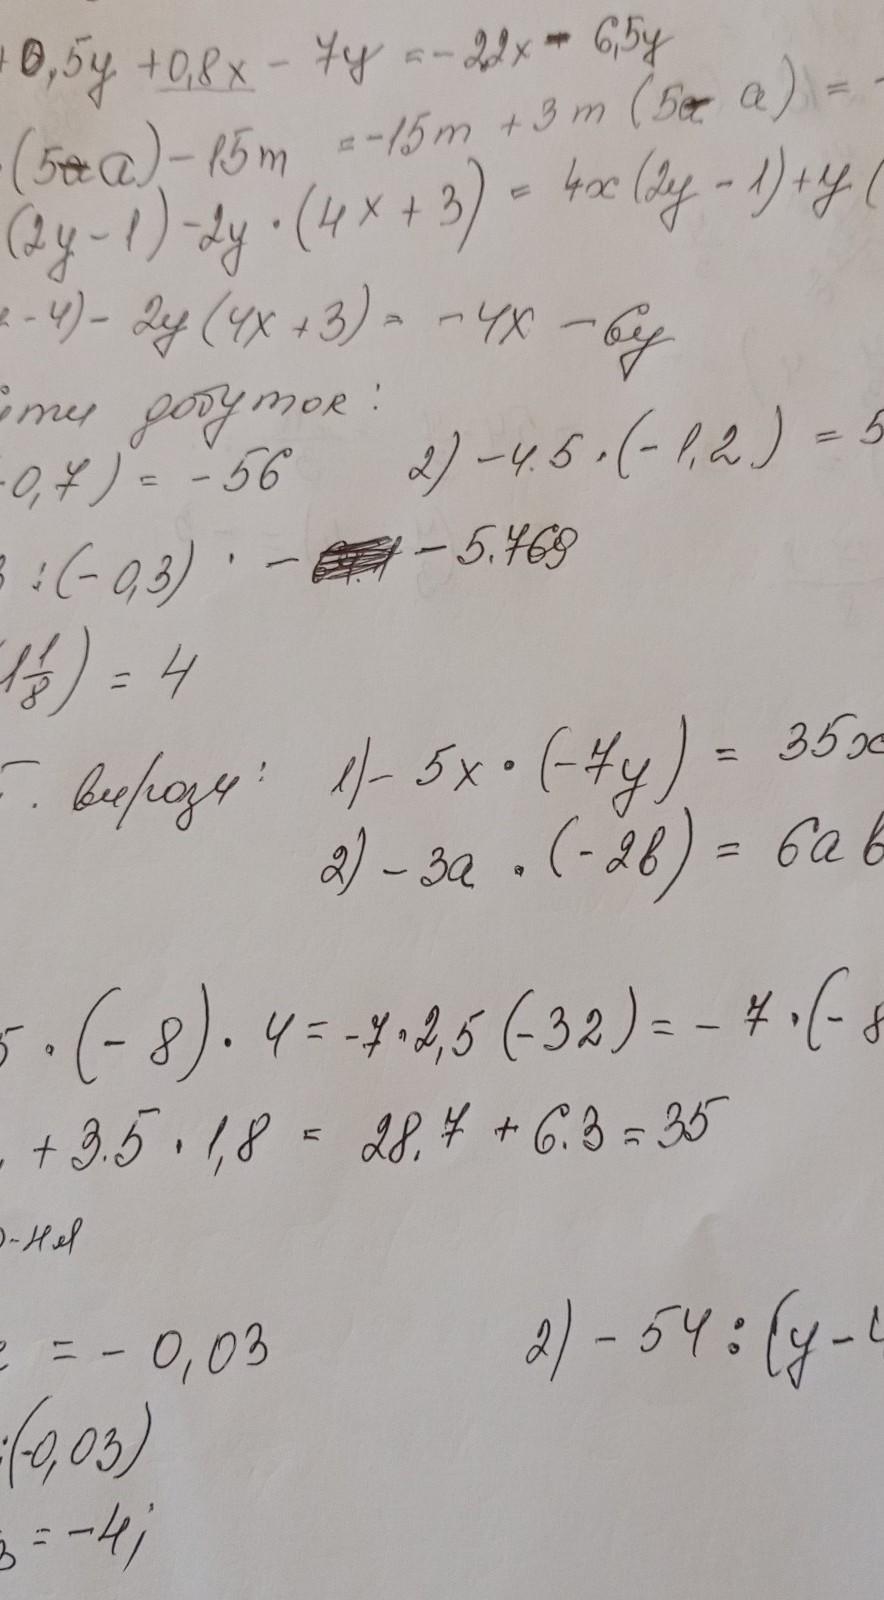 +0,5y + 0,8x - 7y = -2,2x - 6,5y
(5 a) - 15m = -15m + 3m (5 a) = -
(2y - 1) - 2y · (4x + 3) = 4x(2y - 1) + y (
- 4) - 2y (4x + 3) = -4x - 6y
йти добуток:
-0,7) = -56 2) -4.5 · (-1,2) = 5
3 : (-0,3) · - - 5.769
1 1/8) = 4
вирази: 1) - 5x · (-7y) = 35x
2) - 3a · (-2b) = 6ab
5 · (-8) · 4 = -7 · 2,5 (-32) = -7 · (-8
+ 3.5 · 1,8 = 28.7 + 6.3 = 35
-ня
= - 0,03 2) - 54 : (y - 4
:(-0,03)
= -4;